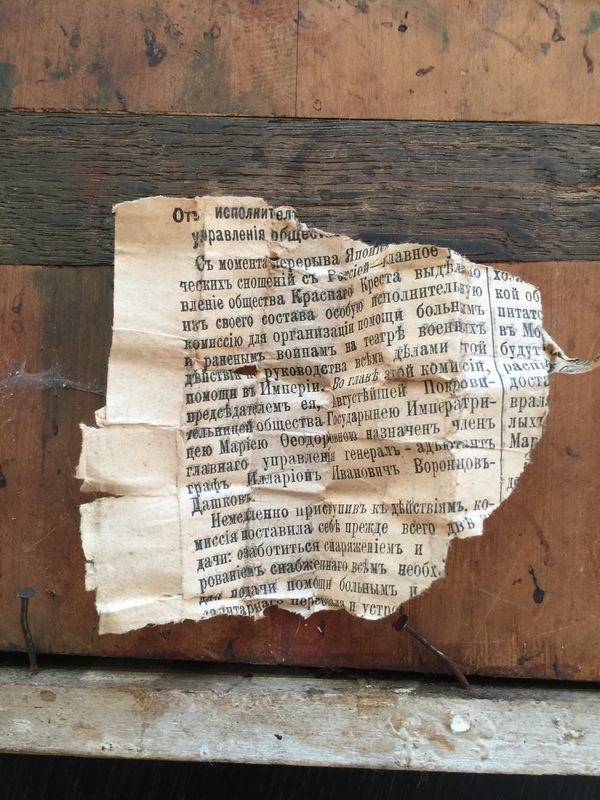 Отъ исполнител
управленія общес
Съ момента перерыва Япон
ческихъ сношеній съ Россіей—главное
вленіе общества Краснаго Креста выдѣлило
изъ своего состава особую исполнительную
комиссію для организаціи помощи больнымъ
и раненымъ воинамъ на театрѣ военныхъ
дѣйствій и руководства всѣми дѣлами этой
помощи въ Имперіи. Во главѣ этой комиссіи,
предсѣдателемъ ея, Августѣйшей Покрови-
тельницей общества Государынею Императри-
цею Маріею Ѳеодоровною назначенъ членъ
главнаго управленія генералъ-адъютантъ
графъ Илларіонъ Ивановичъ Воронцовъ-
Дашковъ.
Немедленно приступивъ къ дѣйствіямъ, ко-
миссія поставила себѣ прежде всего двѣ
дачи: озаботиться снаряженіемъ и
рованіемъ снабженнаго всѣмъ необх
для подачи помощи больнымъ и
санитарнаго персонала и устро
кой об
питато
въ Мо
будут
распи
доста
врал
лыхъ
Мар